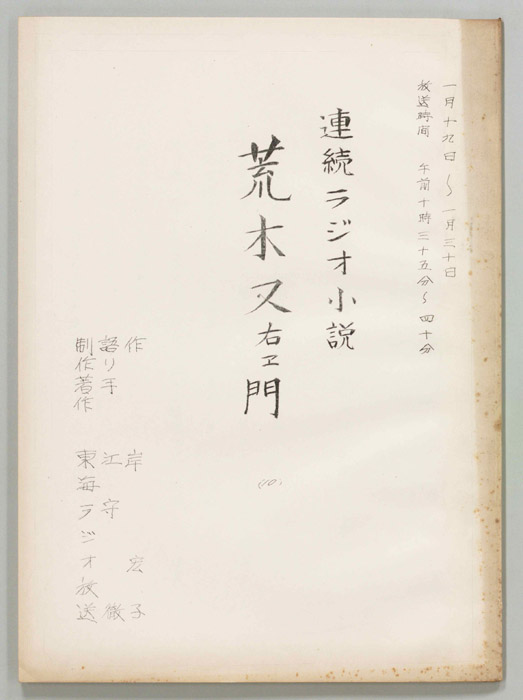 一月十九日〜一月三十日
放送時間　午前十時三十五分〜四十分
連続ラジオ小説
荒木又右ヱ門
(10)
作　岸 宏子
語り手　江守 徹
制作著作　東海ラジオ放送